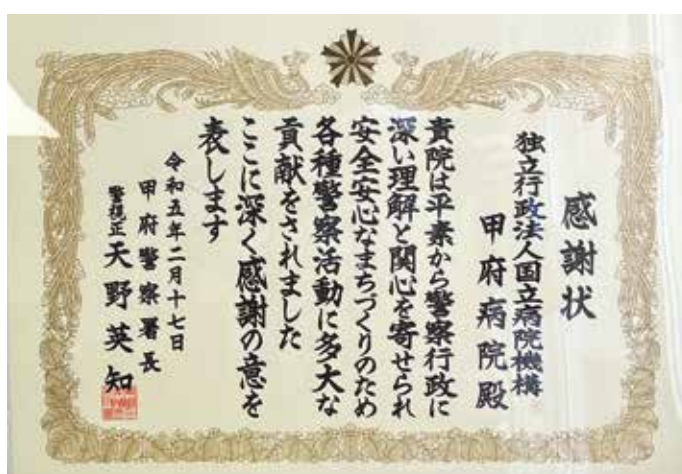 感謝状
独立行政法人国立病院機構
甲府病院殿
貴院は平素から警察行政に
深い理解と関心を寄せられ
安全安心なまちづくりのため
各種警察活動に多大な
貢献をされました
ここに深く感謝の意を
表します
令和五年二月十七日
甲府警察署長
警視正 天野英知